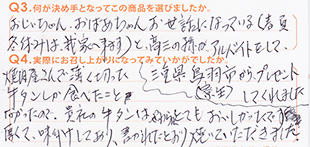 Q3.何が決め手となってこの商品を選びましたか。
おじいちゃん、おばあちゃん、お世話になっている(春夏
冬休みは、我家へ来ます)と、高三の孫がアルバイトをして、
Q4.実際にお召し上がりになってみていかがでしたか。
三重県鳥羽市からプレゼント
焼肉屋さんで薄く切った
してくれました
牛タンしか食べたこと
なかったので、貴社の牛タンは とても おいしかったです。
厚くて、味付けしてあり、書かれたとおり焼いていただきました。